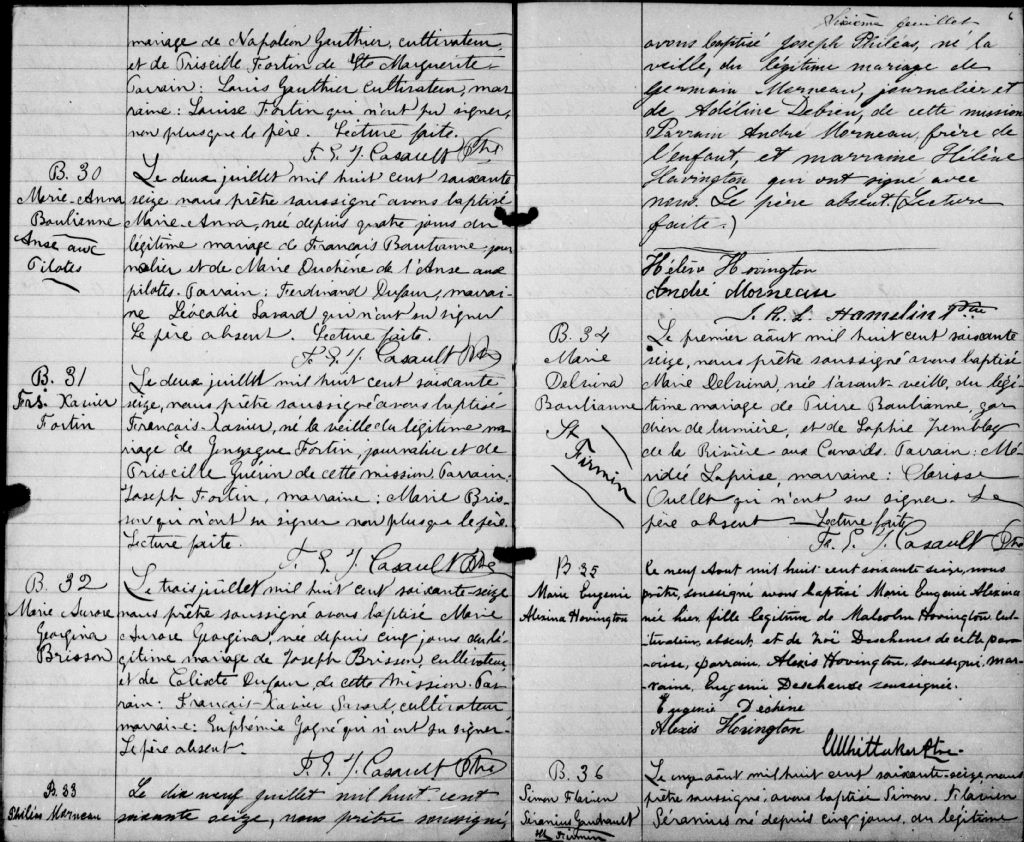 mariage de Napoléon Gauthier, cultivateur,
et de Priscille Fortin de Ste Marguerite
Parrain: Louis Gauthier cultivateur, mar
raine: Louise Fortin qui n'ont pu signer,
non plus que le père. Lecture faite.
F. E. J. Casault Ptre
B. 30
Marie-Anna
Boulianne
Anse aux
Pilotes
Le deux juillet mil huit cent soixante
seize nous prêtre soussigné avons baptisé
Marie-Anna, née depuis quatre jours du
légitime mariage de François Boulianne jour
nalier et de Marie Duchène de l'Anse aux
pilotes. Parrain: Ferdinand Dufour, marrai-
ne Léocadie Savard qui n'ont su signer
Le père absent. Lecture faite.
F. E. J. Casault Ptre
B. 31
Frs. Xavier
Fortin
Le deux juillet mil huit cent soixante
seize, nous prêtre soussigné avons baptisé
François-Xavier, né la veille du légitime ma
riage de Fortin, journalier et de
Priscille Guérin de cette mission. Parrain:
Joseph Fortin, marraine: Marie Bris-
son qui n'ont su signer non plus que le père.
Lecture faite.
F. E. J. Casault Ptre
B. 32
Marie Aurore
Georgina
Brisson
Le trois juillet mil huit cent soixante-seize
nous prêtre soussigné avons baptisé Marie
Aurore Georgina, née depuis cinq jours du lé-
gitime mariage de Joseph Brisson, cultivateur
et de Calixte Dufour, de cette Mission. Par-
rain: François-Xavier Savard, cultivateur
marraine: Euphémie Gagné qui n'ont su signer.
Le père absent.
F. E. J. Casault Ptre
B. 33
Philéas Morneau
Le dix neuf juillet mil huit cent
soixante seize, nous prêtre soussigné,
Sixième feuillet
6
avons baptisé Joseph Philéas, né la
veille, du légitime mariage de
Germain Morneau, journalier et
de Adéline Debien, de cette mission
Parrain André Morneau, frère de
l'enfant, et marraine Hélène
Hovington qui ont signé avec
nous. Le père absent. (Lecture
faite.)
Hélène Hovington
André Morneau
J. R. L. Hamelin Ptre
B. 34
Marie
Delvina
Boulianne
St
Firmin
Le premier août mil huit cent soixante
seize, nous prêtre soussigné avons baptisé
Marie Delvina, née l'avant-veille, du légi-
time mariage de Pierre Boulianne, gar
dien de lumière, et de Sophie Tremblay
de la Rivière aux Canards. Parrain: Mé-
ridié Laprise, marraine: Clarisse
Ouellet qui n'ont su signer. Le
père absent Lecture faite
F. E. J. Casault Ptre
B 35
Marie Eugenie
Alexina Hovington
Le neuf Aout mil huit cent soixante seize, nous
prêtre, soussigné avons baptisé Marie Eugenie Alexina
née hier, fille legitime de Malcolm Hovington cul-
tivateur, absent, et de Zoé Deschenes de cette pa-
roisse, parrain, Alexis Hovington, soussigné, mar-
raine, Eugenie Deschenes soussignée.
Eugenie Déchène
Alexis Hovington
Whittaker Ptre.
B. 36
Simon Flavien
Séranius Gaudreault
St Firmin
Le onze août mil huit cent soixante-seize, nous
prêtre soussigné, avons baptisé Simon Flavien
Séranius né depuis cinq jours, du légitime